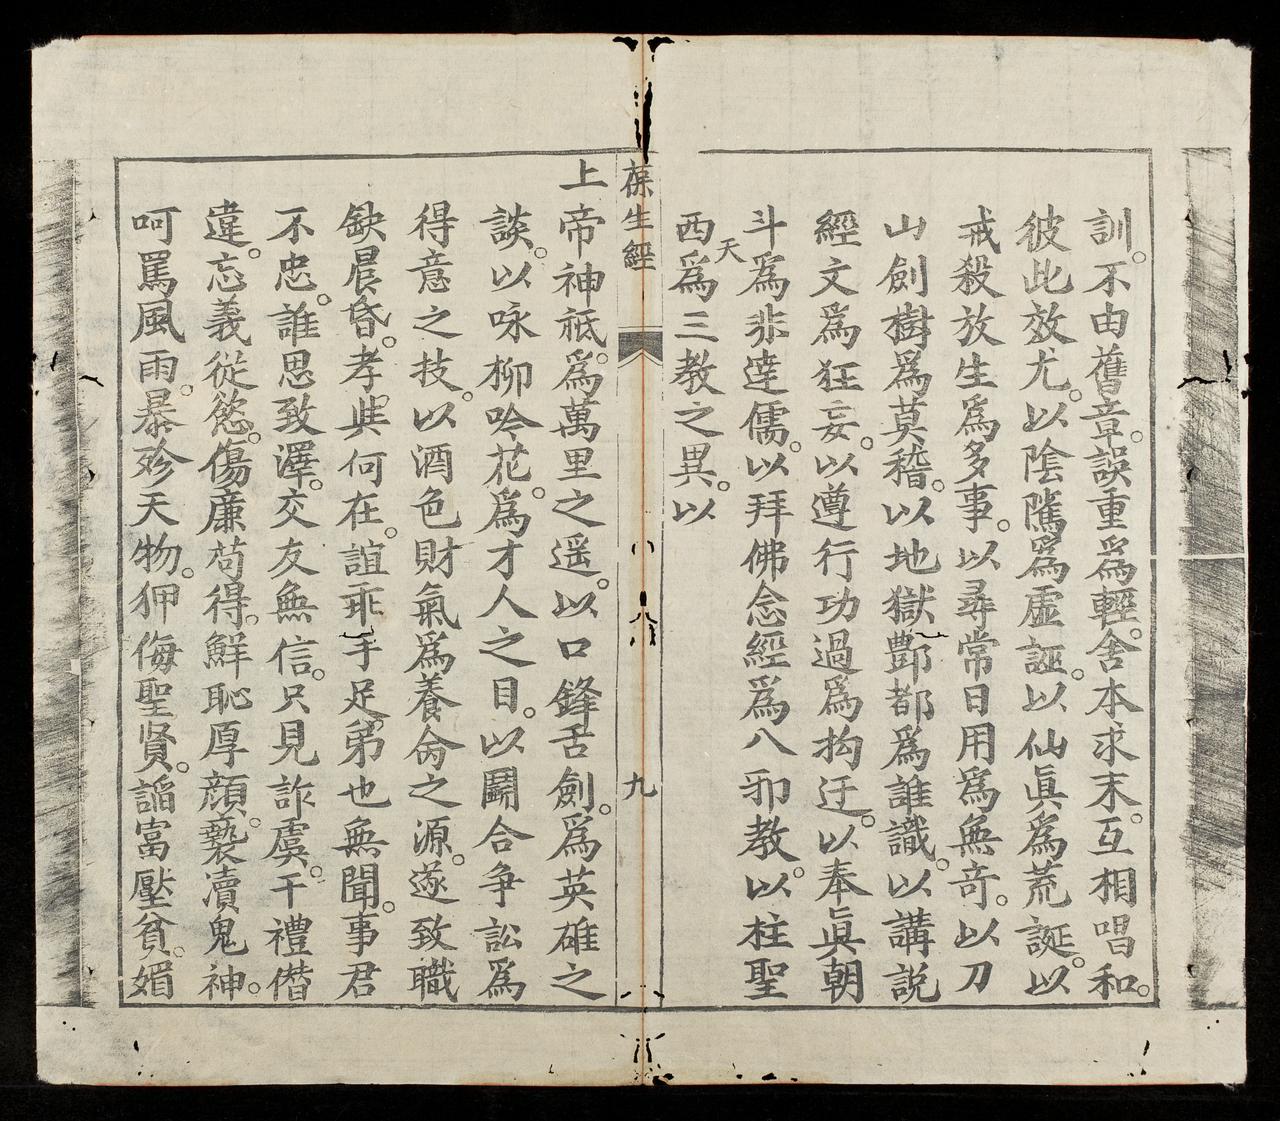 訓。不由舊章。誤重爲輕。舍本求末。互相唱和。
彼此效尤。以陰隲爲虛誣。以仙眞爲荒誕。以
戒殺放生爲多事。以尋常日用爲無奇。以刀
山劍樹爲莫稽。以地獄酆都爲誰識。以講説
經文爲狂妄。以遵行功過爲拘迂。以奉眞朝
斗爲非達儒。以拜佛念經爲八邪教。以柱聖
天
西爲三教之異。以
葆生經
九
上帝神祗。爲萬里之遥。以口鋒舌劍。爲英雄之
談。以咏柳吟花。爲才人之目。以鬭合争訟爲
得意之技。以酒色財氣爲養命之源。遂致職
缺晨昏。孝共何在。誼乖手足。弟也無聞。事君
不忠。誰思致澤。交友無信。只見詐虞。干禮僭
違。忘義從慾。傷廉苟得。鮮恥厚顔。褻瀆鬼神。
呵罵風雨。暴殄天物。狎侮聖賢。謟富壓貧。媚